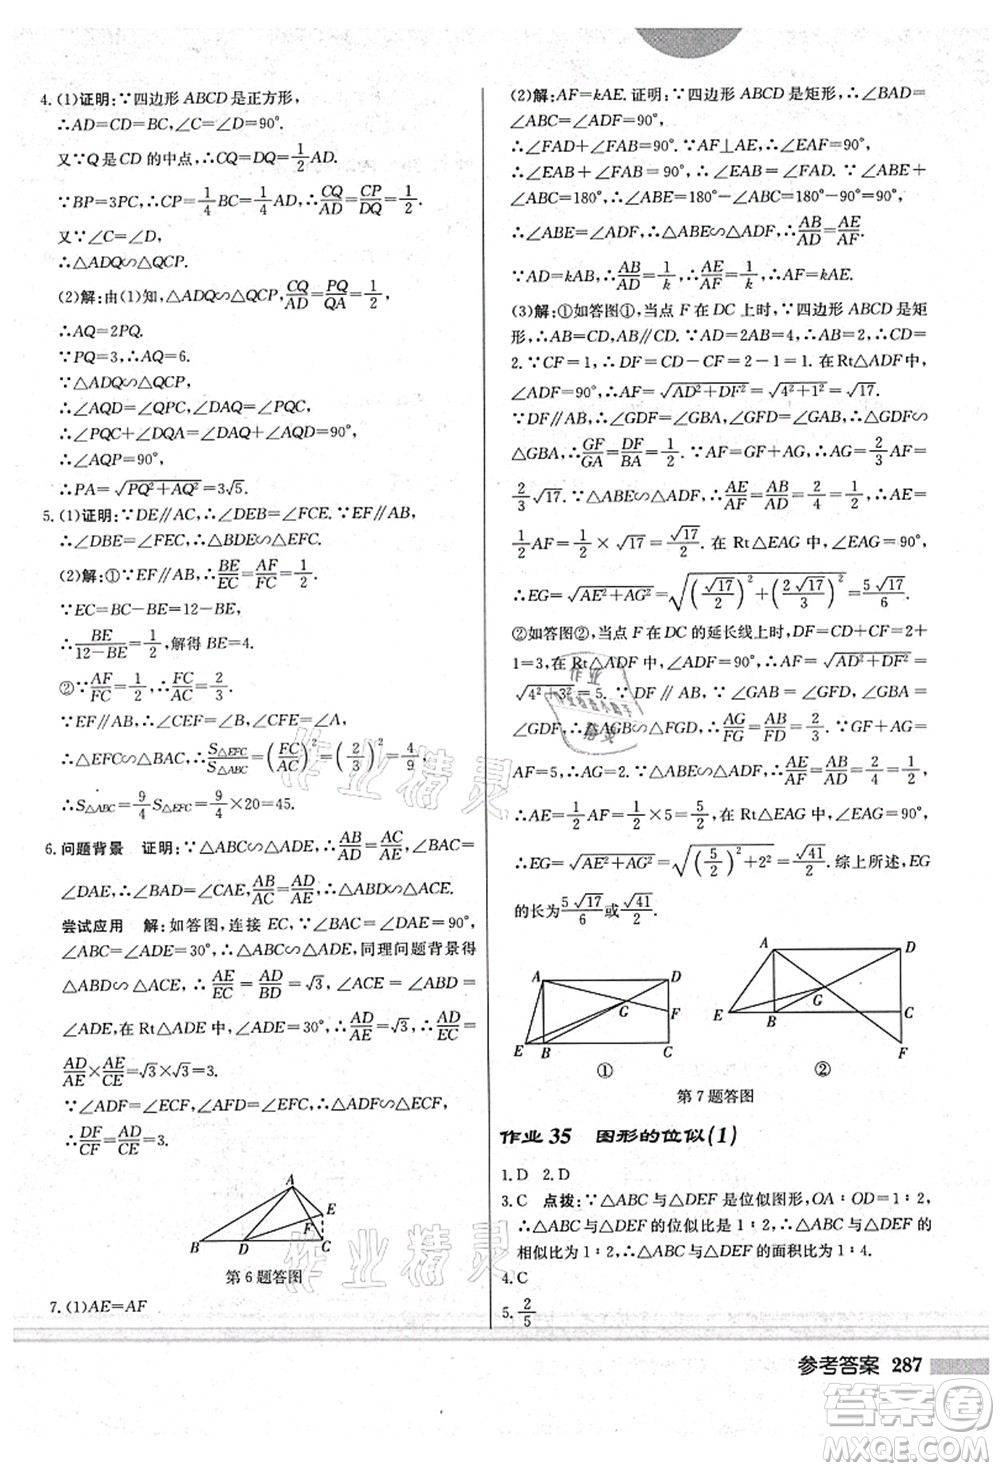 4. (1)证明:∵四边形 ABCD 是正方形,
∴AD=CD=BC,∠C=∠D=90°.
又∵Q 是 CD 的中点,∴CQ=DQ=1/2 AD.
∵BP=3PC,∴CP=1/4 BC=1/4 AD,∴CQ/AD=CP/DQ=1/2.
又∵∠C=∠D,
∴△ADQ∽△QCP.
(2)解:由(1)知,△ADQ∽△QCP,CQ/AD=PQ/QA=1/2,
∴AQ=2PQ.
∵PQ=3,∴AQ=6.
∵△ADQ∽△QCP,
∴∠AQD=∠QPC,∠DAQ=∠PQC,
∴∠PQC+∠DQA=∠DAQ+∠AQD=90°,
∴∠AQP=90°,
∴PA=√(PQ²+AQ²)=3√5.
5. (1)证明:∵DE∥AC,∴∠DEB=∠FCE.∵EF∥AB,
∴∠DBE=∠FEC,∴△BDE∽△EFC.
(2)解:①∵EF∥AB,∴BE/EC=AF/FC=1/2.
∵EC=BC-BE=12-BE,
∴BE/(12-BE)=1/2,解得 BE=4.
②∵AF/FC=1/2,∴FC/AC=2/3.
∵EF∥AB,∴∠CEF=∠B,∠CFE=∠A,
∴△EFC∽△BAC,∴S△EFC/S△ABC=(FC/AC)²=(2/3)²=4/9,
∴S△ABC=9/4 S△EFC=9/4×20=45.
6. 问题背景 证明:∵△ABC∽△ADE,∴AB/AD=AC/AE,∠BAC=
∠DAE,∴∠BAD=∠CAE,AB/AC=AD/AE,∴△ABD∽△ACE.
尝试应用 解:如答图,连接 EC,∵∠BAC=∠DAE=90°,
∠ABC=∠ADE=30°,∴△ABC∽△ADE,同理问题背景得
△ABD∽△ACE,∴AE/EC=AD/BD=√3,∴∠ACE=∠ABD=
∠ADE,在 Rt△ADE 中,∠ADE=30°,∴AD/AE=√3,∴AD/EC=
AD/AE×AE/CE=√3×√3=3.
∵∠ADF=∠ECF,∠AFD=∠EFC,∴△ADF∽△ECF,
∴DF/CF=AD/CE=3.
A
E
F
B
D
C
第 6 题答图
7. (1)AE=AF
(2)解:AF=kAE. 证明:∵四边形 ABCD 是矩形,∴∠BAD=
∠ABC=∠ADF=90°,
∴∠FAD+∠FAB=90°.∵AF⊥AE,∴∠EAF=90°,
∴∠EAB+∠FAB=90°,∴∠EAB=∠FAD. ∵∠ABE+
∠ABC=180°,∴∠ABE=180°-∠ABC=180°-90°=90°,
∴∠ABE=∠ADF,∴△ABE∽△ADF,∴AB/AD=AE/AF.
∵AD=kAB,∴AB/AD=1/k,∴AE/AF=1/k,∴AF=kAE.
(3)解:①如答图①,当点 F 在 DC 上时,∵四边形 ABCD 是矩
形,∴AB=CD,AB∥CD. ∵AD=2AB=4,∴AB=2,∴CD=
2. ∵CF=1,∴DF=CD-CF=2-1=1. 在 Rt△ADF 中,
∠ADF=90°,∴AF=√(AD²+DF²)=√(4²+1²)=√17.
∵DF∥AB,∴∠GDF=∠GBA,∠GFD=∠GAB,∴△GDF∽
△GBA,∴GF/GA=DF/BA=1/2. ∵AF=GF+AG,∴AG=2/3 AF=
2/3 √17. ∵△ABE∽△ADF,∴AE/AF=AB/AD=2/4=1/2,∴AE=
1/2 AF=1/2×√17=√17/2. 在 Rt△EAG 中,∠EAG=90°,
∴EG=√(AE²+AG²)=√((√17/2)²+(2√17/3)²)=5√17/6.
②如答图②,当点 F 在 DC 的延长线上时,DF=CD+CF=2+
1=3. 在 Rt△ADF 中,∠ADF=90°,∴AF=√(AD²+DF²)=
√(4²+3²)=5. ∵DF∥AB,∴∠GAB=∠GFD,∠GBA=
∠GDF,∴△AGB∽△FGD,∴AG/FG=AB/FD=2/3. ∵GF+AG=
AF=5,∴AG=2. ∵△ABE∽△ADF,∴AE/AF=AB/AD=2/4=
1/2,∴AE=1/2 AF=1/2×5=5/2. 在 Rt△EAG 中,∠EAG=90°,
∴EG=√(AE²+AG²)=√((5/2)²+2²)=√41/2. 综上所述,EG
的长为5√17/6或√41/2.
A
D
G
F
E
B
C
①
A
D
G
E
B
C
F
②
第 7 题答图
作业 35 图形的位似(1)
1. D 2. D
3. C 点拨:∵△ABC 与△DEF 是位似图形,OA∶OD=1∶2,
∴△ABC 与△DEF 的位似比是 1∶2,∴△ABC 与△DEF 的
相似比为 1∶2,∴△ABC 与△DEF 的面积比为 1∶4.
4. C
5. 2/5
参考答案 287
作业精灵
作业精灵
答案卷
MXQE.COM